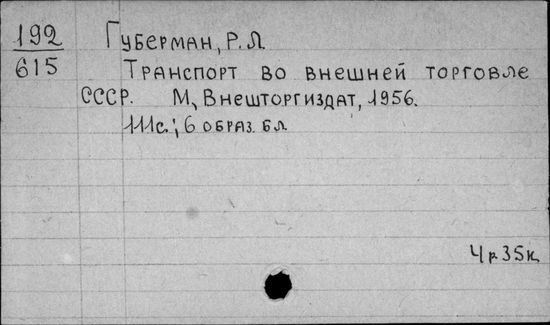 192 Губерман, Р. Л.
615 Транспорт во внешней торговле
СССР. М, Внешторгиздат, 1956.
111с.; 6 образ. бл.
4р35к